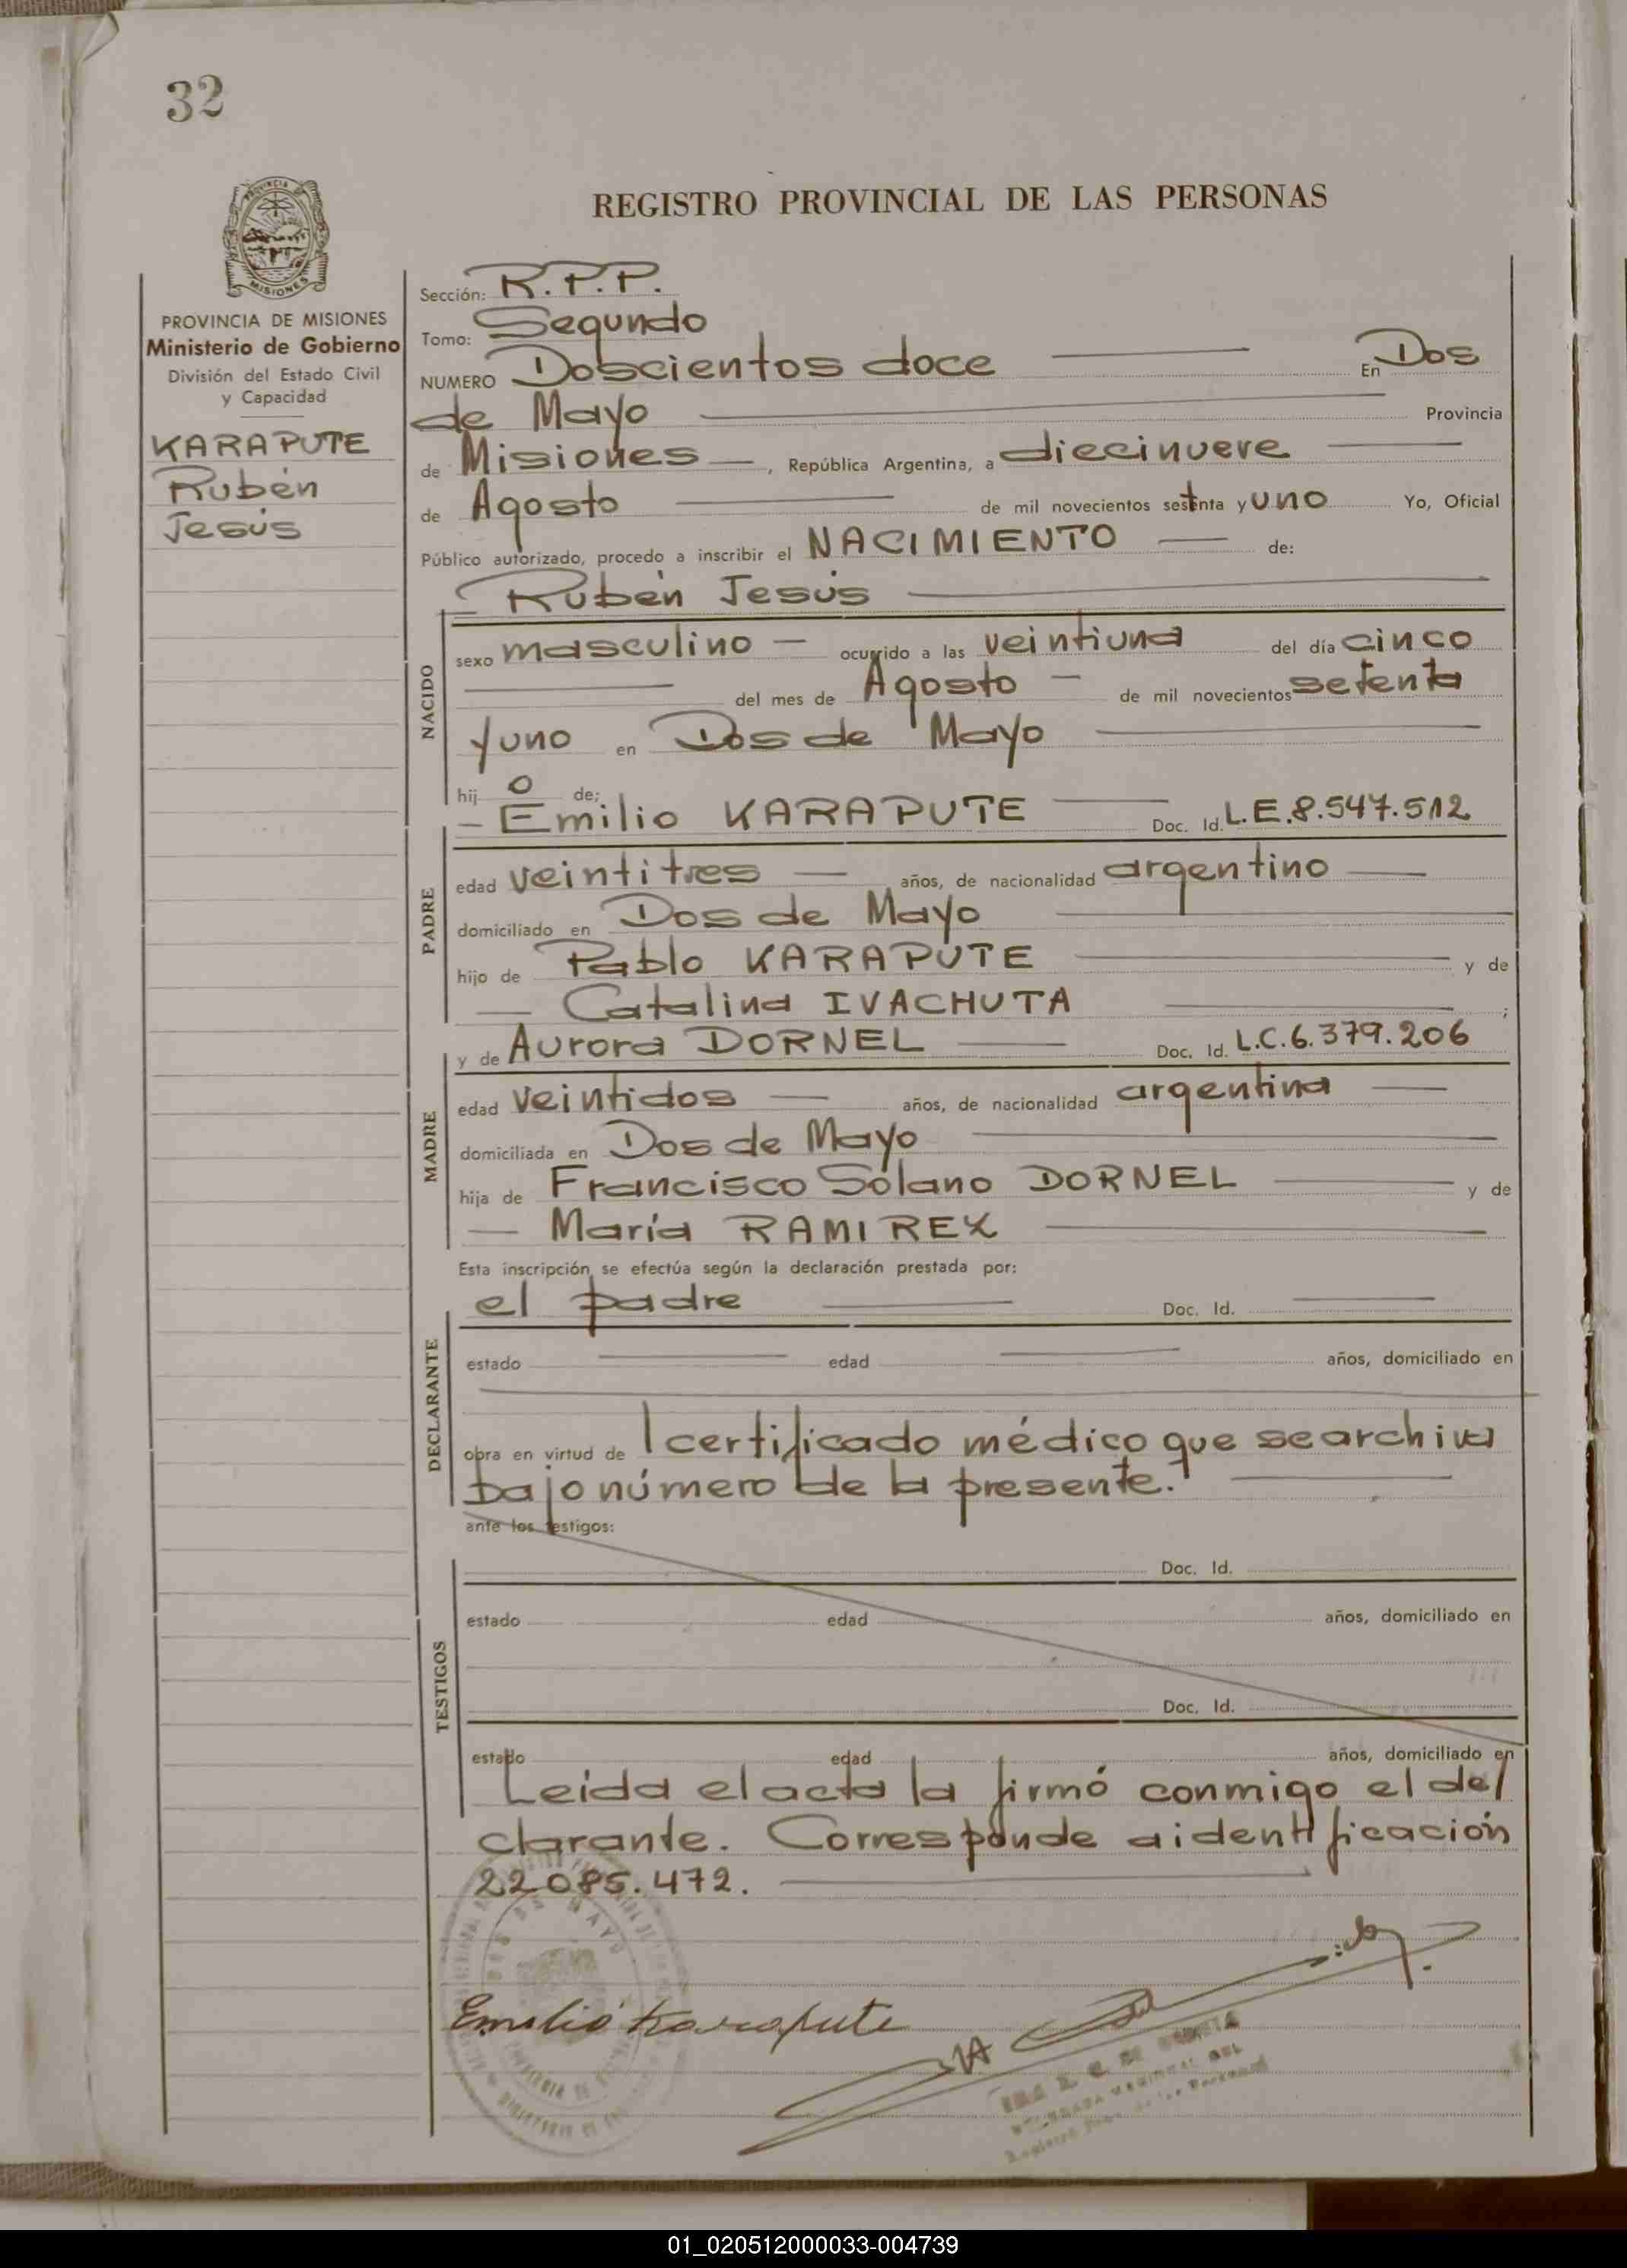 32
REGISTRO PROVINCIAL DE LAS PERSONAS
MISIONES
PROVINCIA DE MISIONES
Ministerio de Gobierno
División del Estado Civil
y Capacidad
KARAPUTE
Rubén
Jesús
Sección: R.P.P.
Tomo: Segundo
NUMERO Doscientos doce En Dos
de Mayo Provincia
de Misiones, República Argentina, a diecinueve
de Agosto de mil novecientos setenta y uno Yo, Oficial
Público autorizado, procedo a inscribir el NACIMIENTO de:
Rubén Jesús
NACIDO
sexo masculino ocurrido a las veintiuna del día cinco
del mes de Agosto de mil novecientos setenta
y uno en Dos de Mayo
hij o de:
Emilio KARAPUTE Doc. Id. L.E.8.547.512
PADRE
edad veintitres años, de nacionalidad argentino
domiciliado en Dos de Mayo
hijo de Pablo KARAPUTE y de
Catalina IVACHUTA ;
y de Aurora DORNEL Doc. Id. L.C.6.379.206
MADRE
edad veintidos años, de nacionalidad argentina
domiciliada en Dos de Mayo
hija de Francisco Solano DORNEL y de
María RAMIREZ
Esta inscripción se efectúa según la declaración prestada por:
el padre Doc. Id.
DECLARANTE
estado edad años, domiciliado en
obra en virtud de l certificado médico que se archiva
bajo número de la presente.
ante los testigos:
Doc. Id.
TESTIGOS
estado edad años, domiciliado en
Doc. Id.
estado edad años, domiciliado en
Leida el acta la firmó conmigo el de/
clarante. Corresponde a identificación
22085.472.
Emilio Karapute
01_020512000033-004739